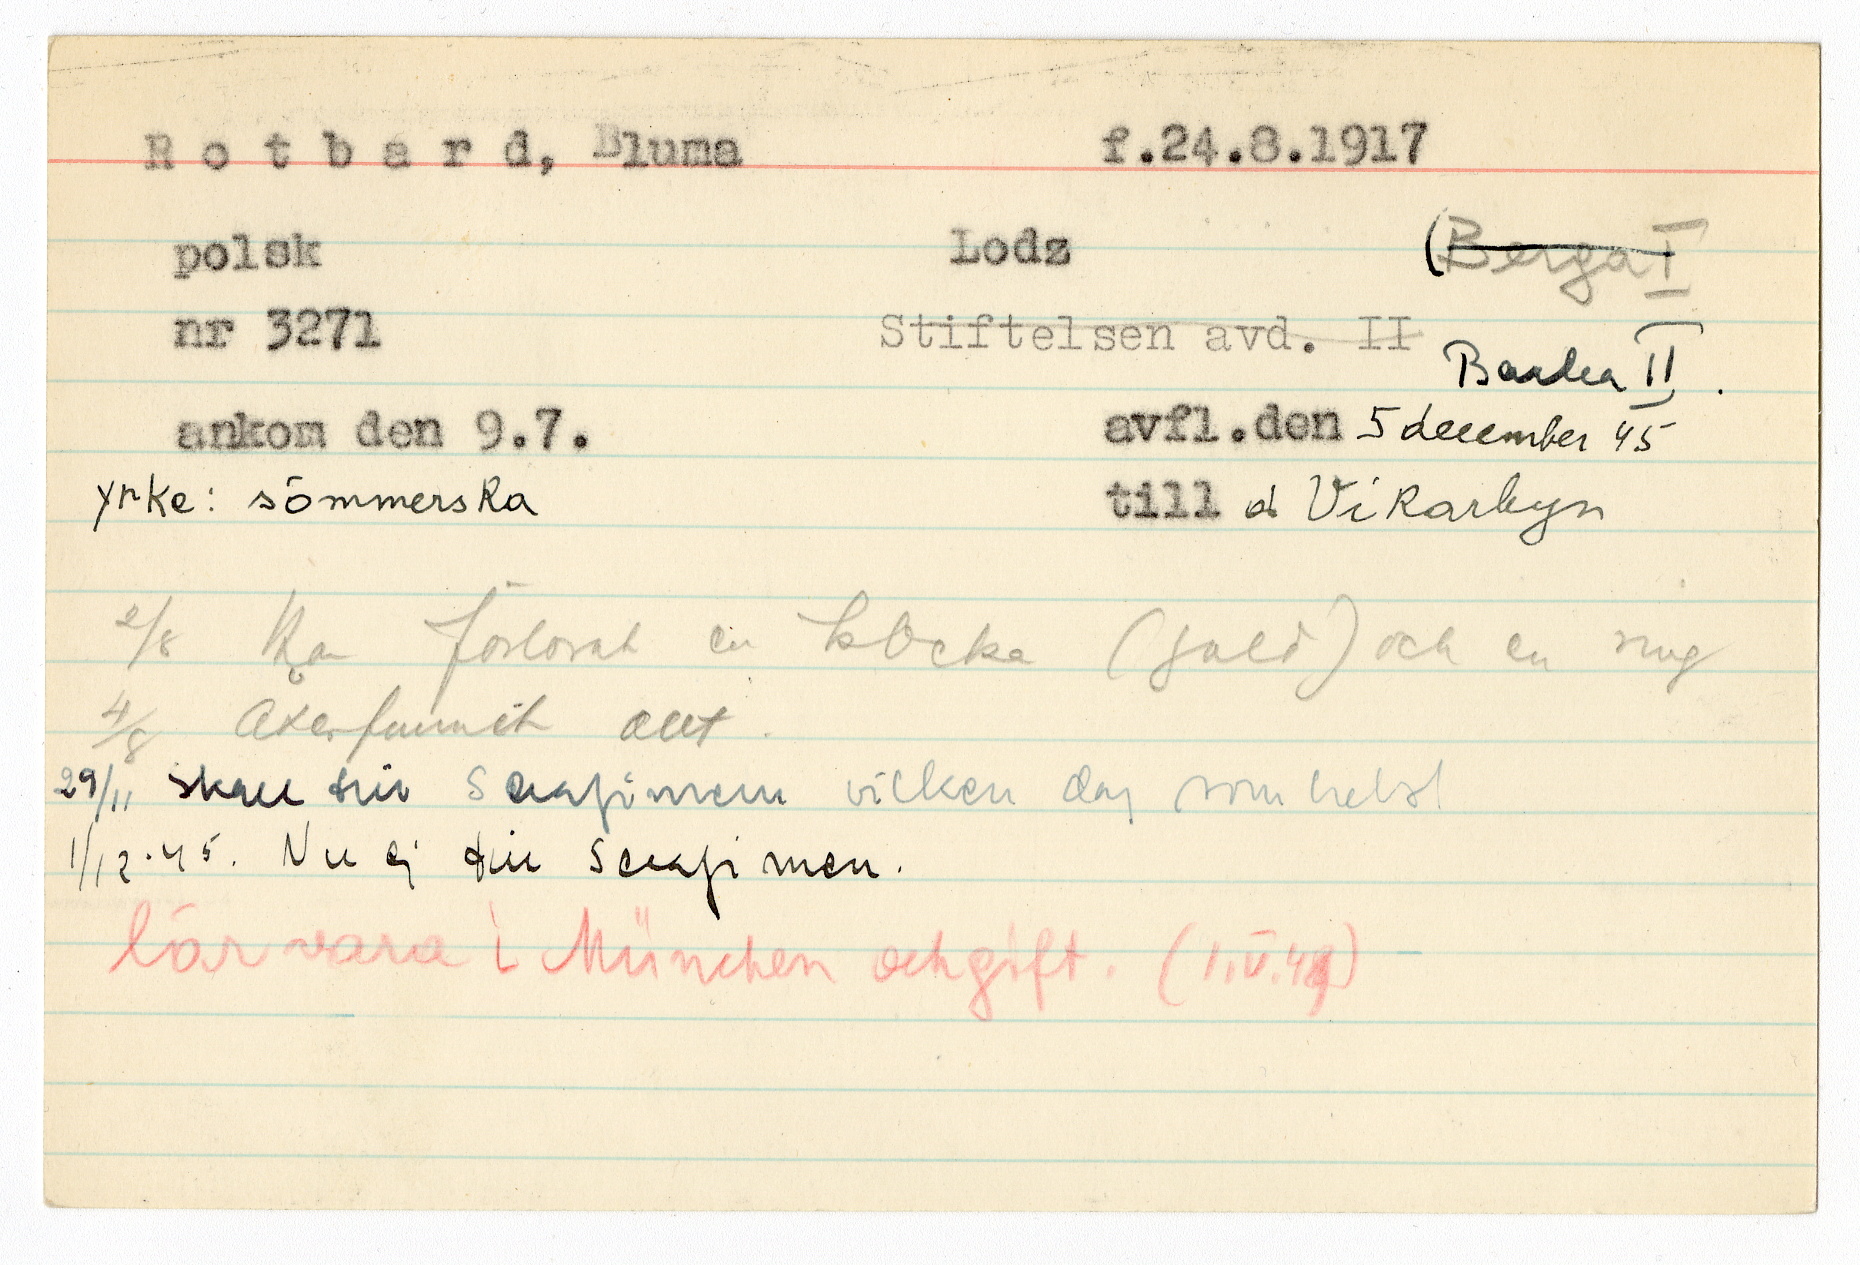 R o t b a r d, Bluma f.24.8.1917
polsk Lodz (Berga I
nr 3271 Stiftelsen avd. II
Baalea II.
ankom den 9.7. avfl.den 5 december 45
yrke: sömmerska till Vikarbyn
2/8 Har förlorat en klocka (guld) och en ring
4/8 Återfunnit allt.
29/11 skall till Serafimern vilken dag som helst
1/12.45. Nu ej till Serafimen.
lär vara i München och gift. (1.V.49)